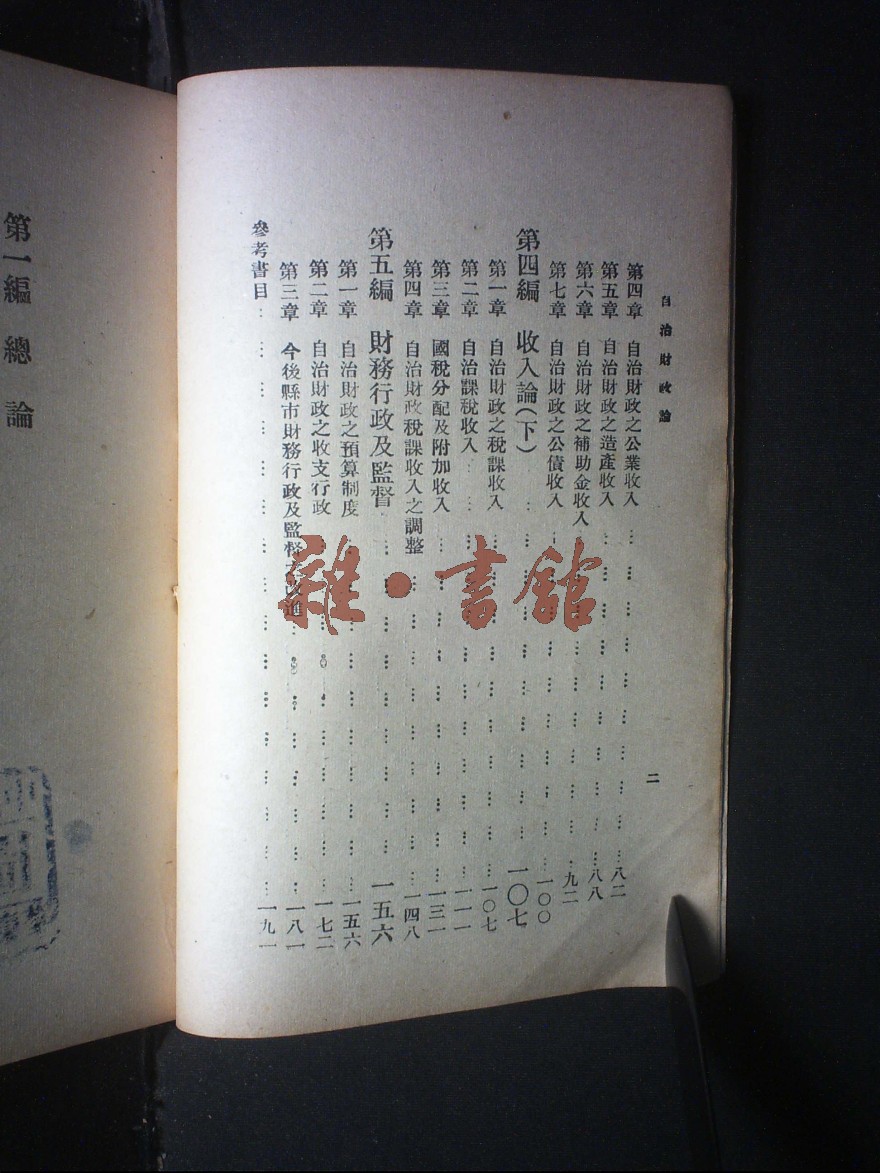 自治財政論
二
第四章 自治財政之公業收入……八二
第五章 自治財政之造產收入……八八
第六章 自治財政之補助金收入……九二
第七章 自治財政之公債收入……一〇〇
第四編 收入論(下)……一〇七
第一章 自治財政之稅課收入……一〇七
第二章 自治課稅收入……一一一
第三章 國稅分配及附加收入……一三一
第四章 自治財政稅課收入之調整……一四八
第五編 財務行政及監督……一五六
第一章 自治財政之預算制度……一五六
第二章 自治財政之收支行政……一七二
第三章 今後縣市財務行政及監督……一八一
參考書目……一九一
第一編 總論
雜·書館